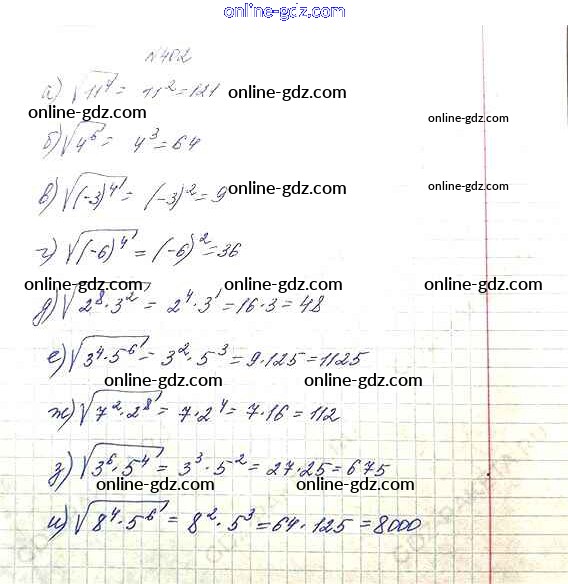 online-gdz.com
№402
а) √11⁴ = 11² = 121 online-gdz.com
online-gdz.com online-gdz.com
б) √4⁶ = 4³ = 64
в) √(-3)⁴ = (-3)² = 9 online-gdz.com online-gdz.com
г) √(-6)⁴ = (-6)² = 36
online-gdz.com online-gdz.com online-gdz.com
д) √2⁸·3² = 2⁴·3' = 16·3 = 48
е) √3⁴·5⁶ = 3²·5³ = 9·125 = 1125
online-gdz.com online-gdz.com
ж) √7²·2⁸ = 7·2⁴ = 7·16 = 112
з) √3⁶·5⁴ = 3³·5² = 27·25 = 675
online-gdz.com online-gdz.com
и) √8⁴·5⁶ = 8²·5³ = 64·125 = 8000